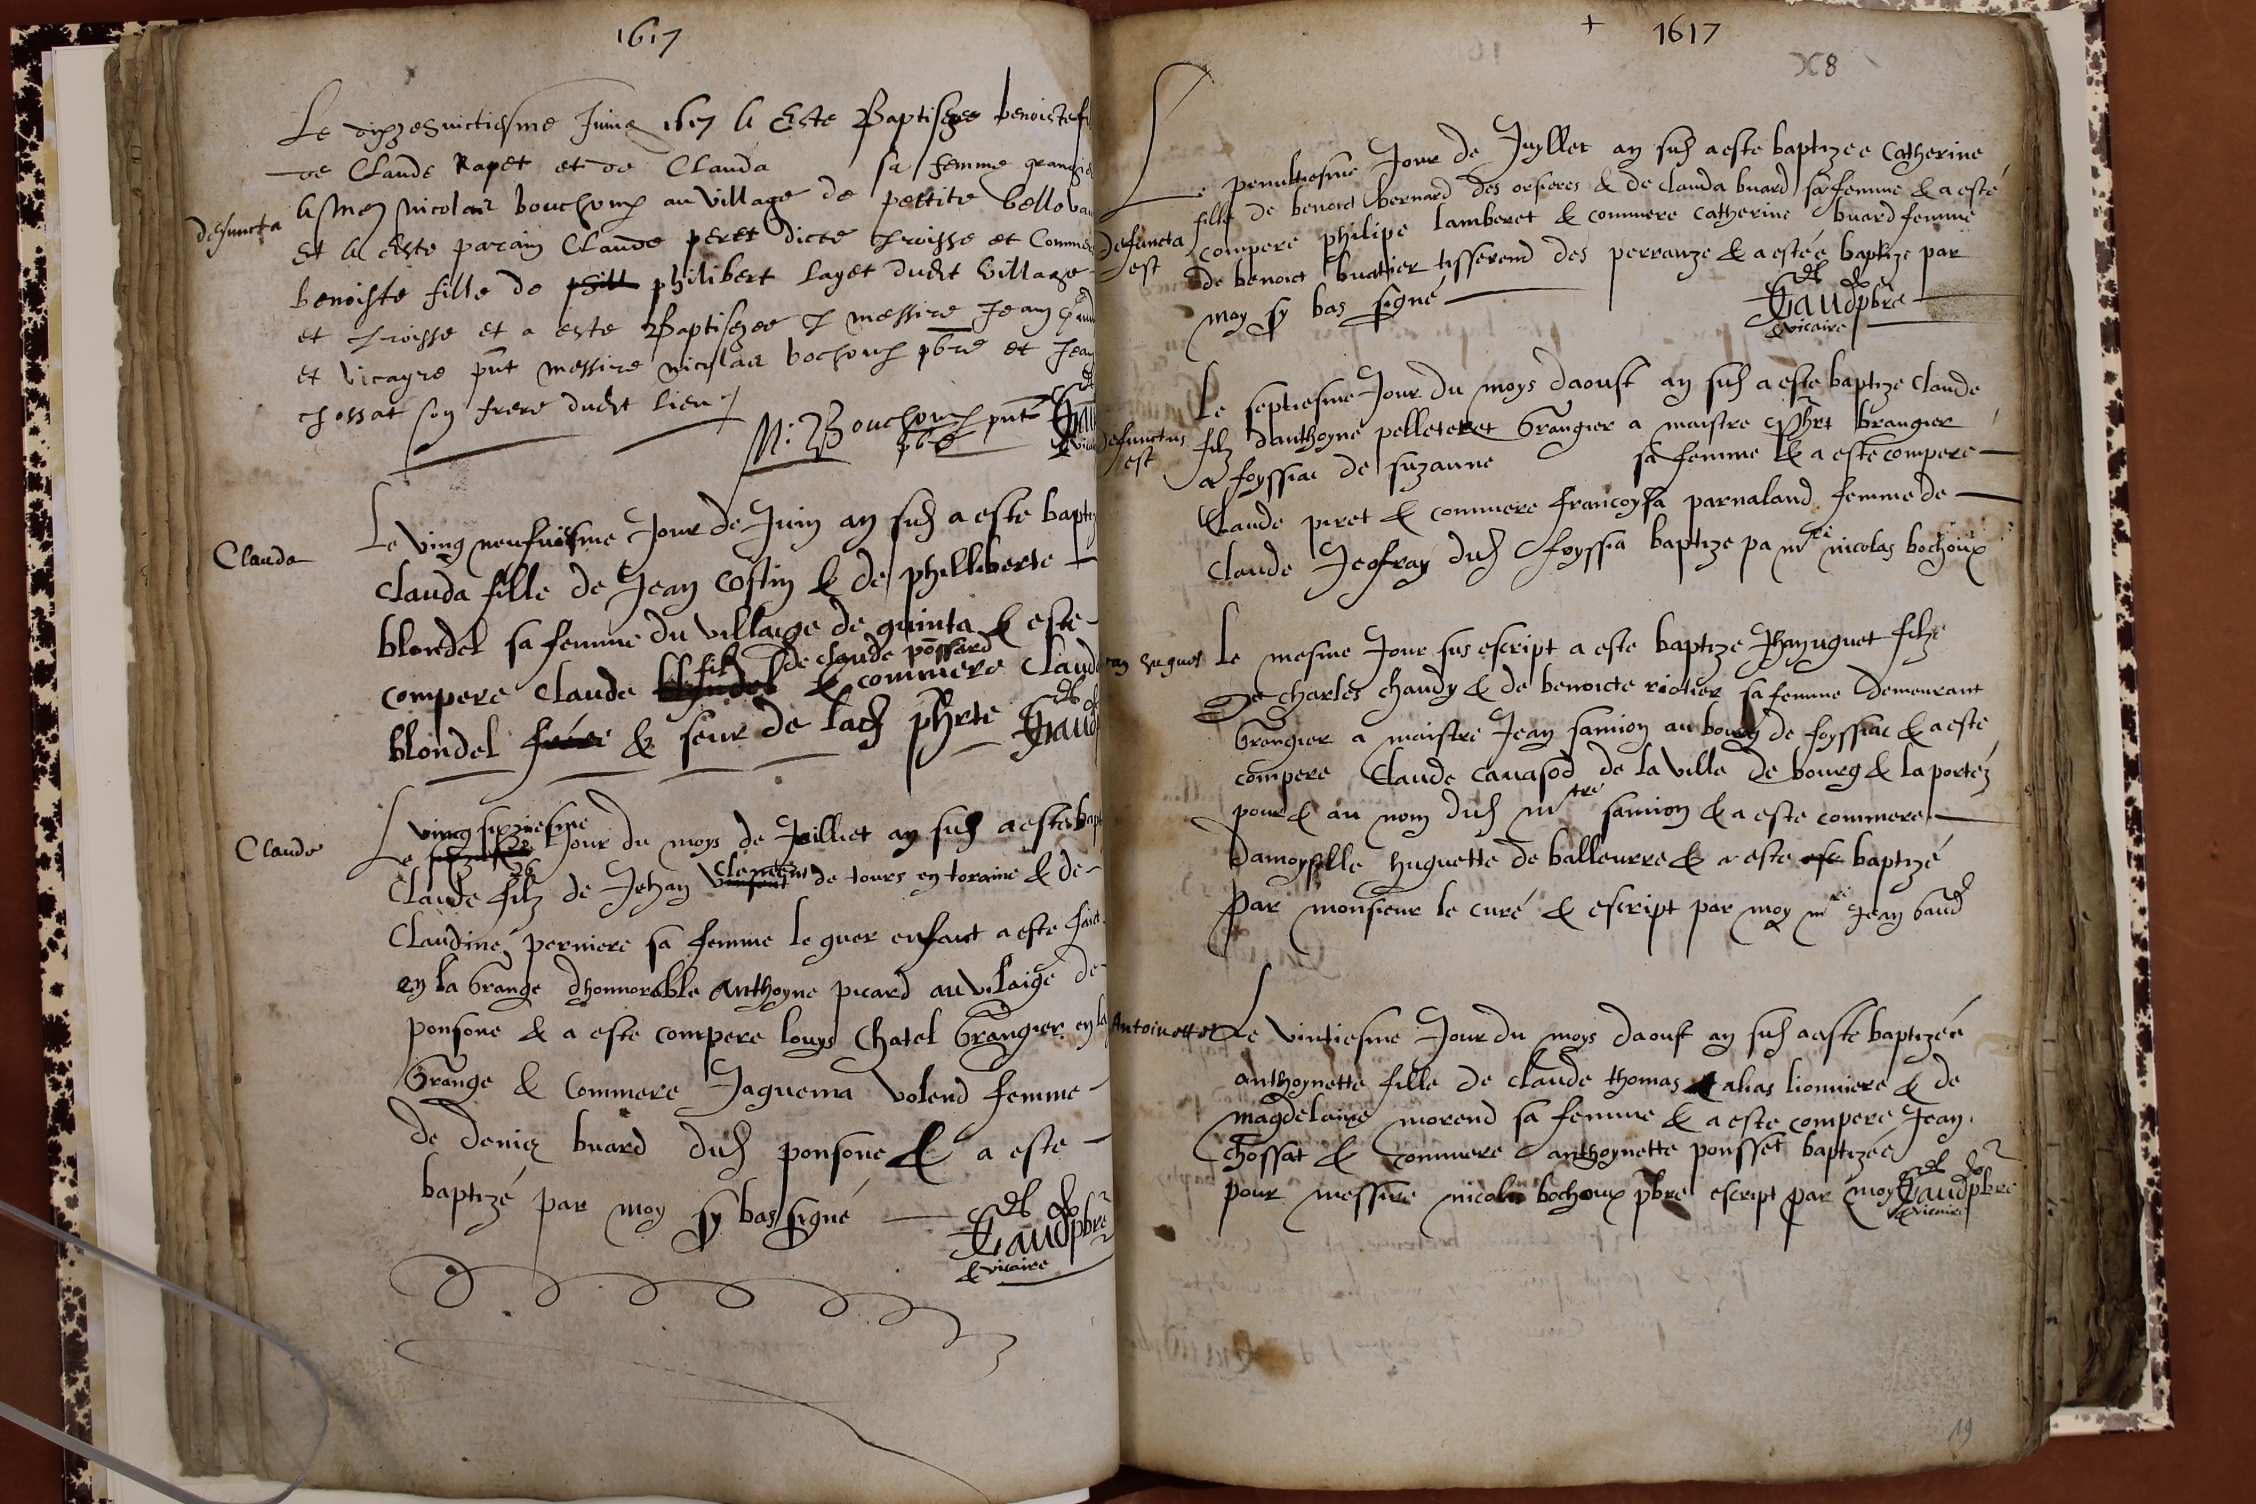 1617
Le dixzeduictiesme Juing 1617 A Este Baptiszee benoiste fi
de Claude Rapet et de Clauda sa femme grangie
A Me nicolas bouchoux au village de pettite bellova
defuncta
Et A este parain Claude peret dicte Froisse et Commer
benoiste fille de phill philibert layet dudt village
et Froisse et a este Baptiszee P messire Jean Gaud
et vicayre pnt messire nicolas bochoux pbre et Jean
chossat son frere dudt lieu
N: Bouchoux pnt
pbre
Gau
Clauda
Le ving neufuiesme Jour de Juin an sud a este bapti
clauda fille de Jean Costin & de philliberte
blondel sa femme du village de quinta & este
fils de claude possard
compere Claude blondel & commere Claud
blondel frere & seur de lad phrte Gaud
ving sixziesme
Claude
Le Jour du moys de Juilliet an sud a este bapt
26
Clement
Claude filz de Jehan de tours en toraine & de
Claudine perniere sa femme le quer enfant a este faict
en la Grange dhonnorable Anthoyne picard au vilaige de
ponsone & a este compere louys Chatel Grangier en la
Grange & Commere Jaquema volend femme
de deniz buard dud ponsone & a este
baptizé par moy sy bas signé
Gaud pbre
& vicaire
+
1617
X8
Le penultiesme Jour de Juyllet an sud a este baptizee Catherine
fille de benoict bernard des orsieres & de clauda buard sa femme & a esté
defuncta
est
compere philipe lamberet & commere catherine buard femme
de benoict buatier tisserend des perranze & a estée baptize par
moy sy bas signé
Gaud pbre
& vicaire
Le septiesme Jour du moys daoust an sud a este baptize Claude
defunctus
est
filz danthoyne pelleteret Grangier a maistre phrt brangier
a foyssiac de suzanne sa femme & a este compere
Claude piret & commere francoysa parnaland femme de
claude Jeofray dud foyssia baptize pa mre nicolas bochoux
Jean huguet
Le mesme Jour sus escript a este baptize Jhanuguet filz
De charles chaudy & de benoicte riotier sa femme demeurant
Grangier a maistre Jean samion au bourg de foyssiac & a este
compere Claude cauasod de la ville de bourg & la portéz
pour & au nom dud mtre samion & a este commere
Damoyselle huguette de balleurre & a este est baptizé
Par monsieur le curé & escript par moy mre Jean Gaud
Antoinette
Le vintiesme Jour du moys daoust an sud a este baptizée
anthoynette fille de claude thomas alias lionniere & de
magdelaine morend sa femme & a este compere Jean
Chossat & commere anthoynette pousset baptizée
pour messire nicolas bochoux pbre escript par moy Gaud pbre
& vicaire
19